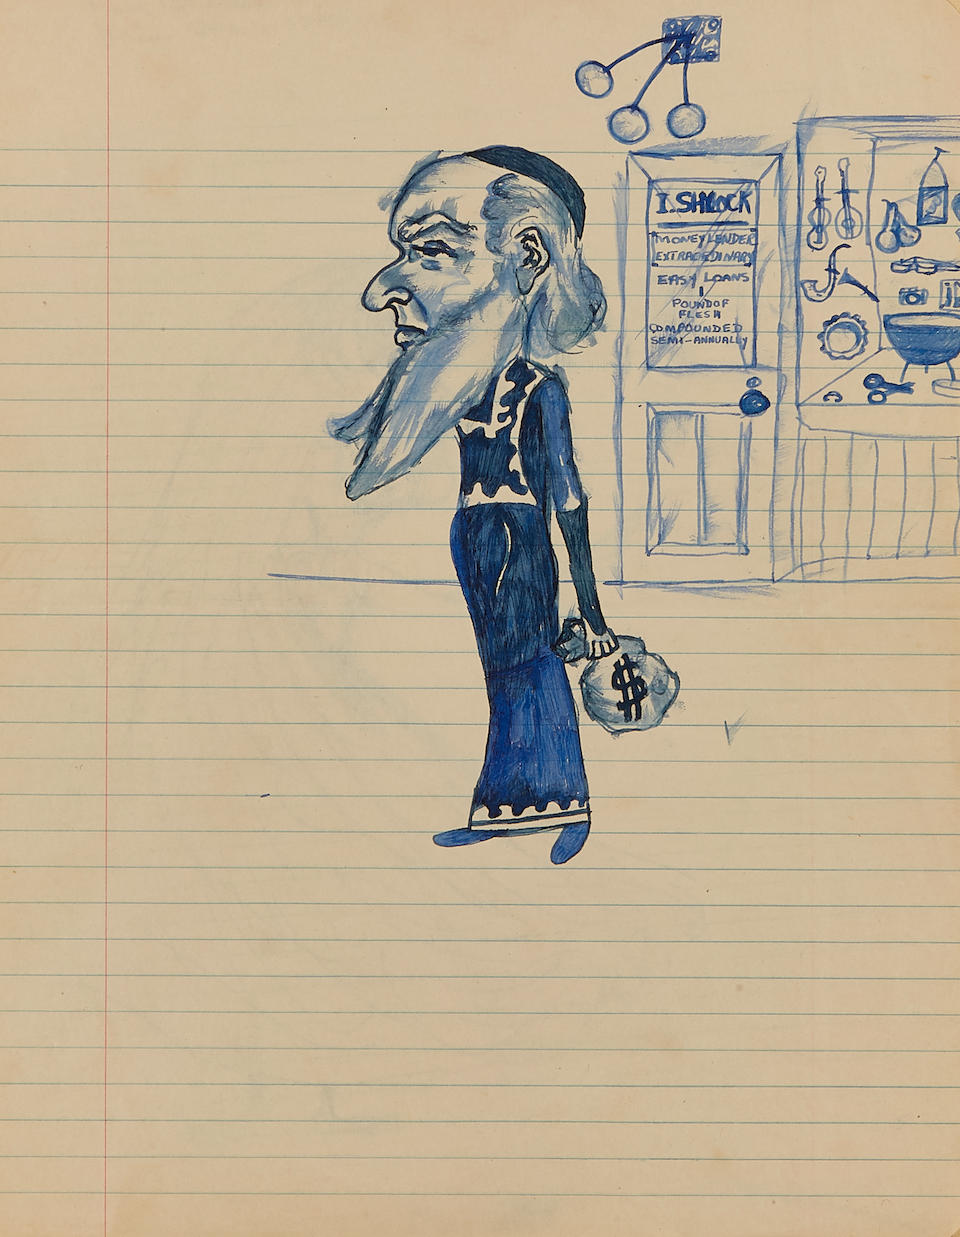 I. SHYLOCK
MONEYLENDER
EXTRAORDINARY
EASY LOANS
1
POUND OF
FLESH
COMPOUNDED
SEMI-ANNUALLY
$